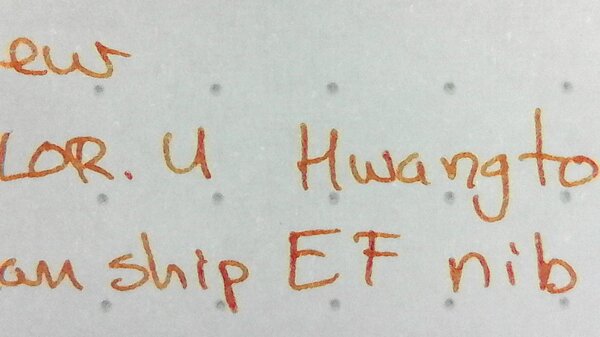 ew
LOR. U Hwangto
an ship EF nib